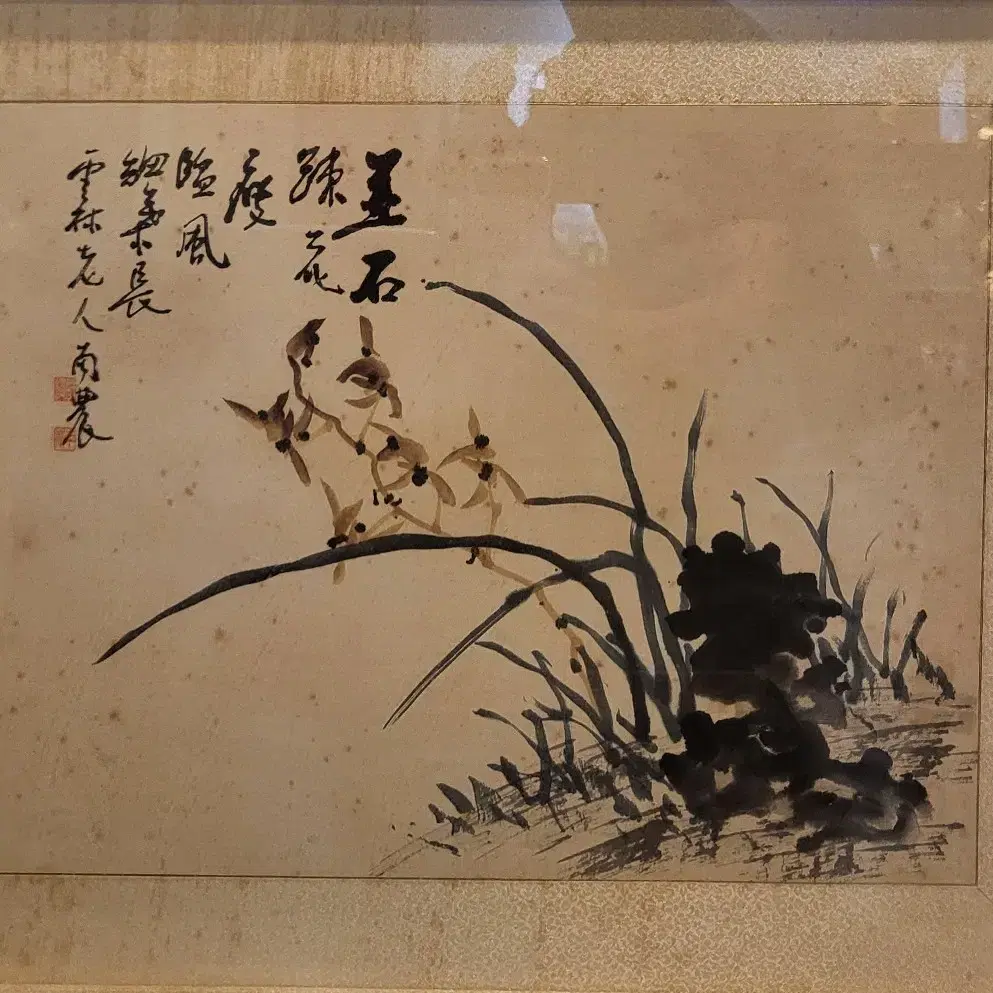 並石
疎花
瘦
臨風
細葉長
雲林老人 南農